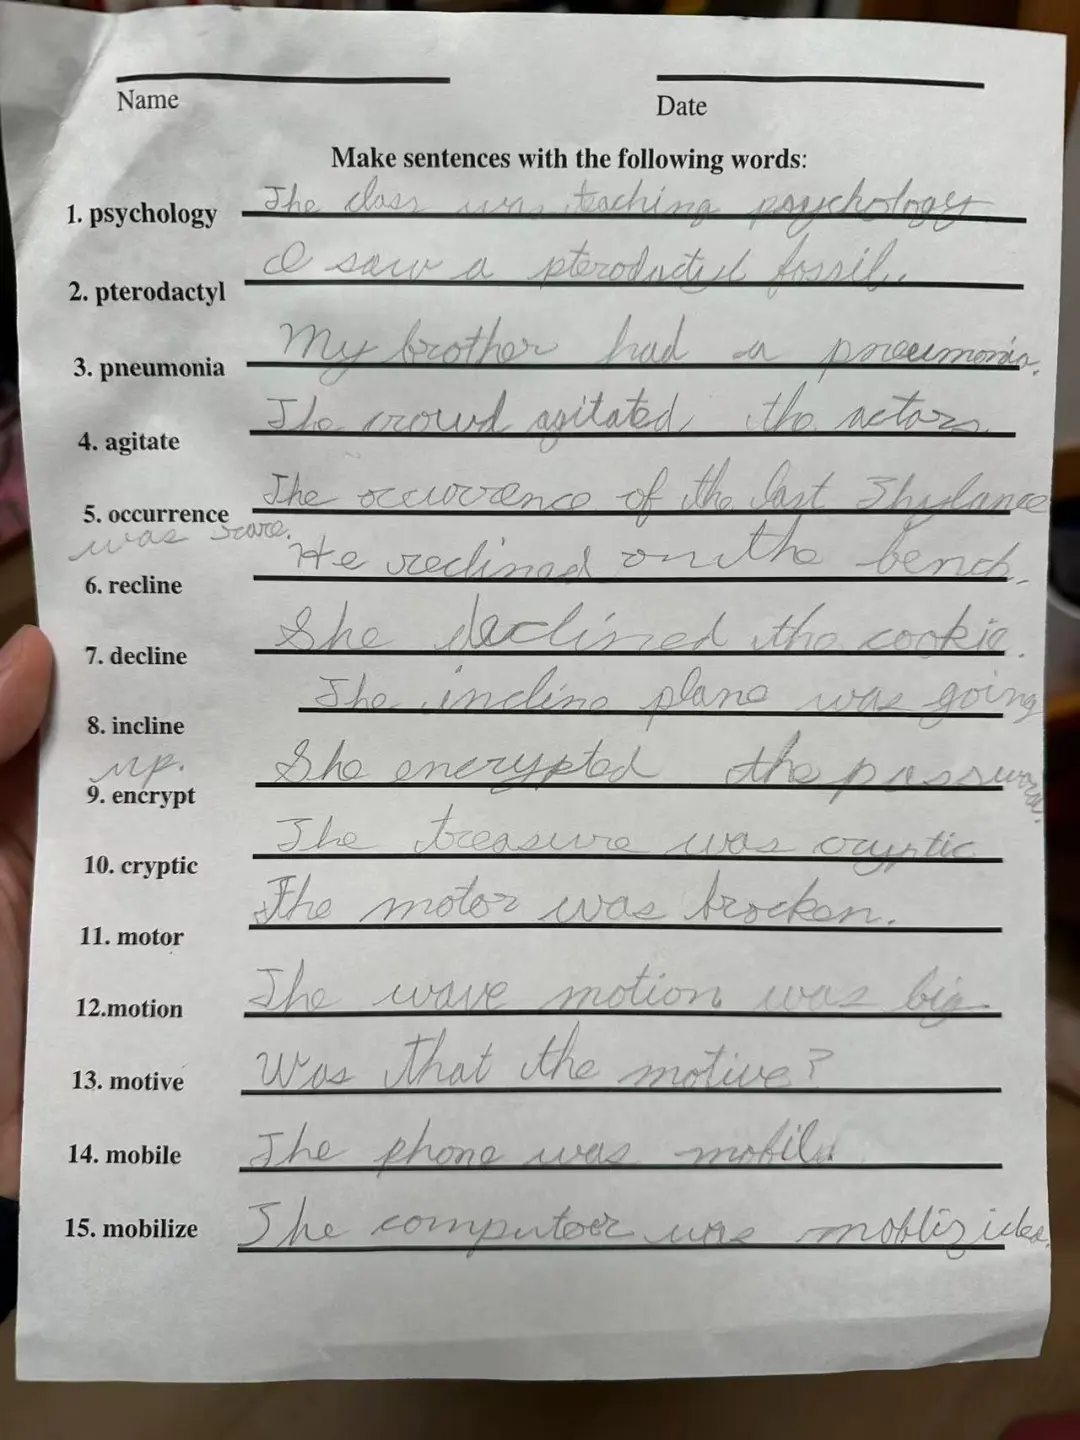 Name Date
Make sentences with the following words:
1. psychology The class was teaching psychology
2. pterodactyl I saw a pterodactyl fossil.
3. pneumonia My brother had a pneumonia.
4. agitate The crowd agitated the actors.
5. occurrence The occurrence of the last
was
6. recline He reclined on the bench.
7. decline She declined the cookie.
8. incline The incline plane was going
up.
9. encrypt She encrypted the password.
10. cryptic The treasure was cryptic
11. motor The motor was brocken.
12.motion The wave motion was big
13. motive Was that the motive?
14. mobile The phone was mobile.
15. mobilize The computer was